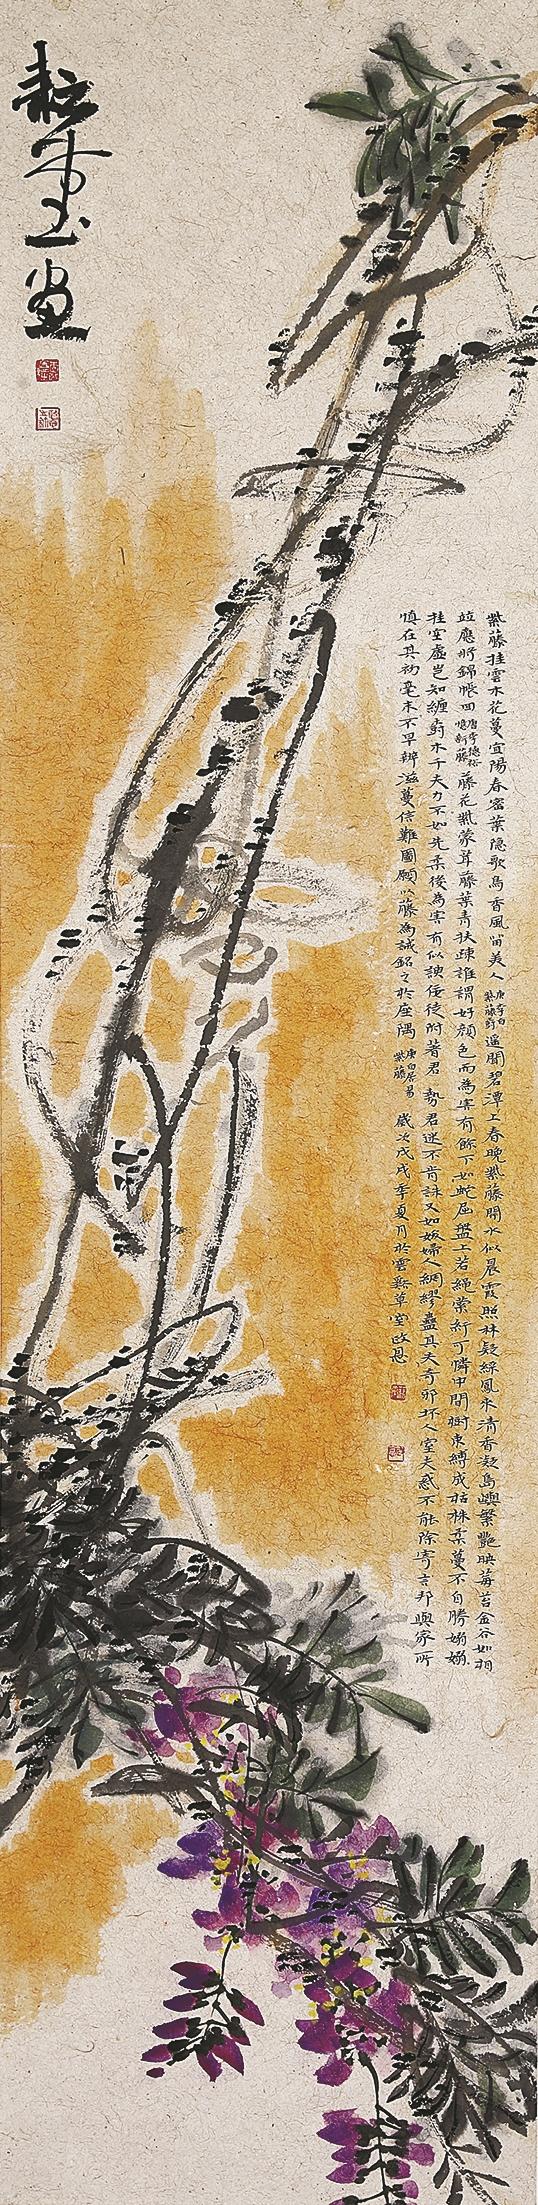 紫藤挂雲木花蔓宜陽春密葉隱歌鳥香風留美人唐李白紫藤樹遙聞碧潭上春晚紫藤開水似晨霞照林疑綵鳳來清香凝島嶼繁艷映莓苔金谷如相
竝應將錦帳回唐李德裕憶新藤藤花紫蒙茸藤葉青扶疎誰謂好顏色而為害有餘下如蛇屈盤上若繩縈紆可憐中間樹束縛成枯株柔蔓不自勝嫋嫋
挂空虛豈知纏樹木千夫力不如先柔後為害有似諛佞徒附著君勢君迷不肯誅又如妖婦人綢繆蠱其夫奇邪坏人室夫惑不能除寄言邦與家所
慎在其初毫末不早辨滋蔓信難圖願以藤為誡銘之於座隅唐白居易紫藤歲次戊戌年夏月於雲草室政恩